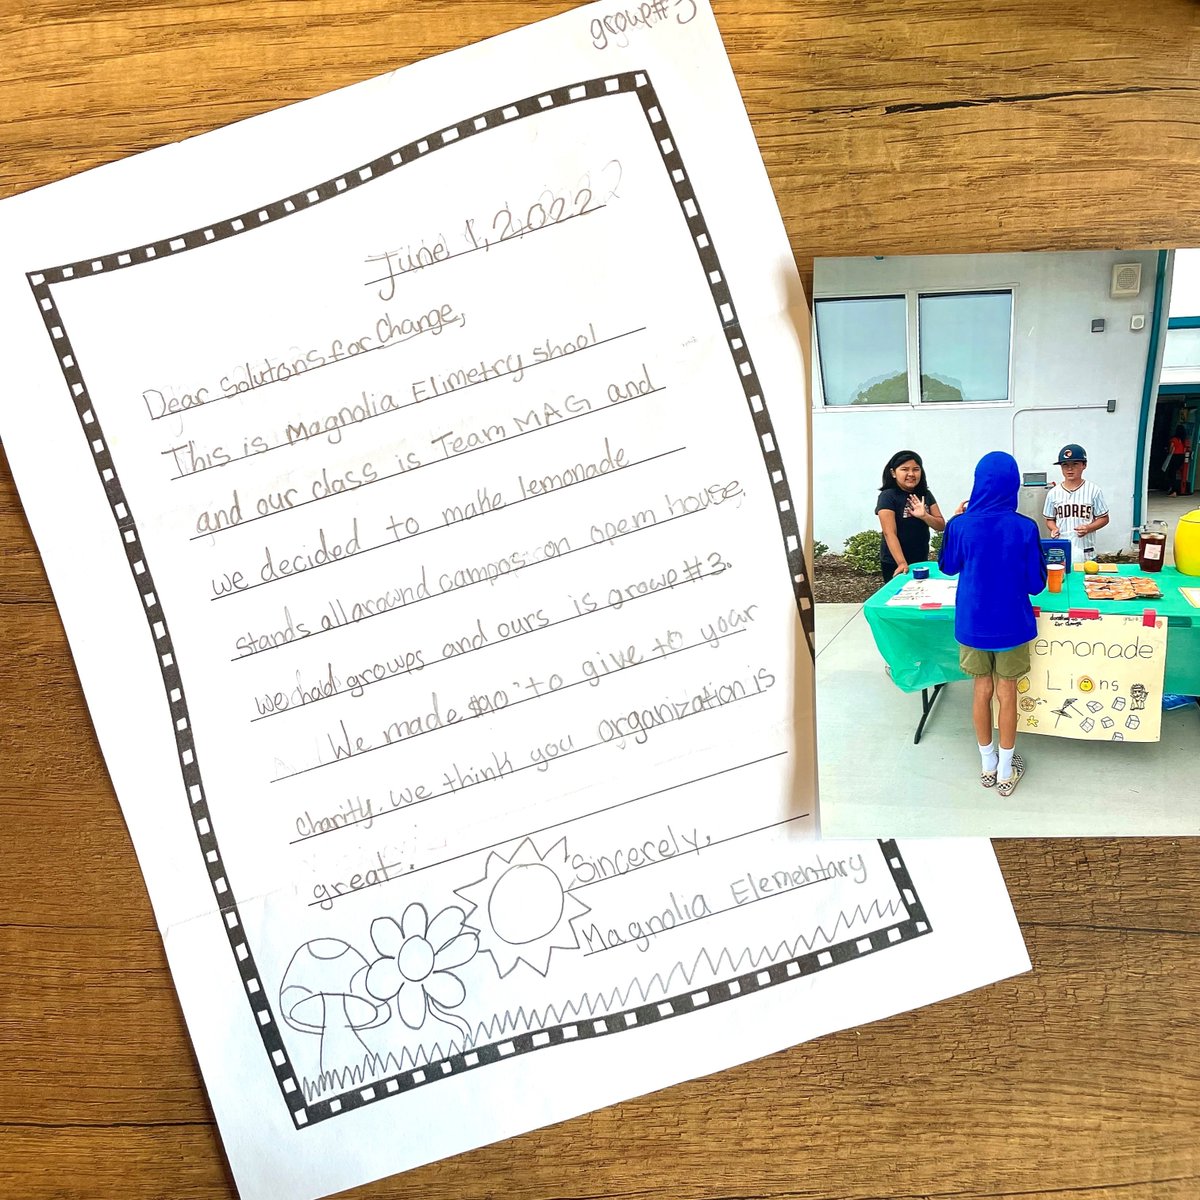 group#3
June 1, 2022
Dear Solutons for Change,
This is Magnolia Elimetry shool
and our class is Team MAG and
we decided to make lemonade
stands all around campas on opem house.
we had groups and ours is groep #3.
We made $90 to give to your
charity. We think you organization is
great.
Sincerely,
Magnolia Elementary
PADRES
for change
Lemonade
Lions